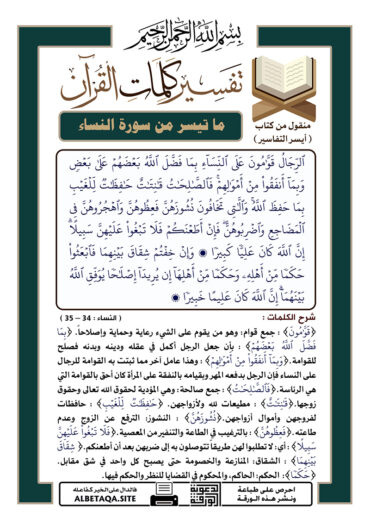 بسم الله الرحمن الرحيم
تفسير كلمات القرآن
منقول من كتاب
( أيسر التفاسير )
ما تيسر من سورة النساء
ٱلرِّجَالُ قَوَّٰمُونَ عَلَى ٱلنِّسَآءِ بِمَا فَضَّلَ ٱللَّهُ بَعۡضَهُمۡ عَلَىٰ بَعۡضٖ
وَبِمَآ أَنفَقُواْ مِنۡ أَمۡوَٰلِهِمۡۚ فَٱلصَّٰلِحَٰتُ قَٰنِتَٰتٌ حَٰفِظَٰتٞ لِّلۡغَيۡبِ
بِمَا حَفِظَ ٱللَّهُۚ وَٱلَّٰتِي تَخَافُونَ نُشُوزَهُنَّ فَعِظُوهُنَّ وَٱهۡجُرُوهُنَّ فِي
ٱلۡمَضَاجِعِ وَٱضۡرِبُوهُنَّۖ فَإِنۡ أَطَعۡنَكُمۡ فَلَا تَبۡغُواْ عَلَيۡهِنَّ سَبِيلًاۗ
إِنَّ ٱللَّهَ كَانَ عَلِيّٗا كَبِيرٗا ۞ وَإِنۡ خِفۡتُمۡ شِقَاقَ بَيۡنِهِمَا فَٱبۡعَثُواْ
حَكَمٗا مِّنۡ أَهۡلِهِۦ وَحَكَمٗا مِّنۡ أَهۡلِهَآ إِن يُرِيدَآ إِصۡلَٰحٗا يُوَفِّقِ ٱللَّهُ
بَيۡنَهُمَآۗ إِنَّ ٱللَّهَ كَانَ عَلِيمًا خَبِيرٗا ۞
شرح الكلمات : ( النساء : 34 – 35 )
﴿قَوَّٰمُونَ﴾ : جمع قوام: وهو من يقوم على الشيء رعاية وحماية وإصلاحاً. ﴿بِمَا
فَضَّلَ ٱللَّهُ بَعۡضَهُمۡ﴾ : بأن جعل الرجل أكمل في عقله ودينه وبدنه فصلح
للقوامة. ﴿وَبِمَآ أَنفَقُواْ مِنۡ أَمۡوَٰلِهِمۡ﴾ : وهذا عامل آخر مما ثبتت به القوامة للرجال
على النساء فإن الرجل بدفعه المهر وبقيامه بالنفقة على المرأة كان أحق بالقوامة التي
هي الرئاسة. ﴿فَٱلصَّٰلِحَٰتُ﴾ : جمع صالحة: وهي المؤدية لحقوق الله تعالى وحقوق
زوجها. ﴿قَٰنِتَٰتٌ﴾ : مطيعات لله ولأزواجهن. ﴿حَٰفِظَٰتٞ لِّلۡغَيۡبِ﴾ : حافظات
لفروجهن وأموال أزواجهن. ﴿نُشُوزَهُنَّ﴾ : النشوز: الترفع عن الزوج وعدم
طاعته. ﴿فَعِظُوهُنَّ﴾ : بالترغيب في الطاعة والتنفير من المعصية. ﴿فَلَا تَبۡغُواْ عَلَيۡهِنَّ
سَبِيلًا﴾ : أي: لا تطلبوا لهن طريقاً تتوصلون به إلى ضربهن بعد أن أطعنكم. ﴿شِقَاقَ
بَيۡنِهِمَا﴾ : الشقاق: المنازعة والخصومة حتى يصبح كل واحد في شق مقابل.
﴿حَكَمٗا﴾ : الحكم: الحاكم، والمحكوم في القضايا للنظر والحكم فيها.
احرص على طباعة
ونشر هذه الورقة
فالدال على الخير كفاعله
ALBETAQA.SITE